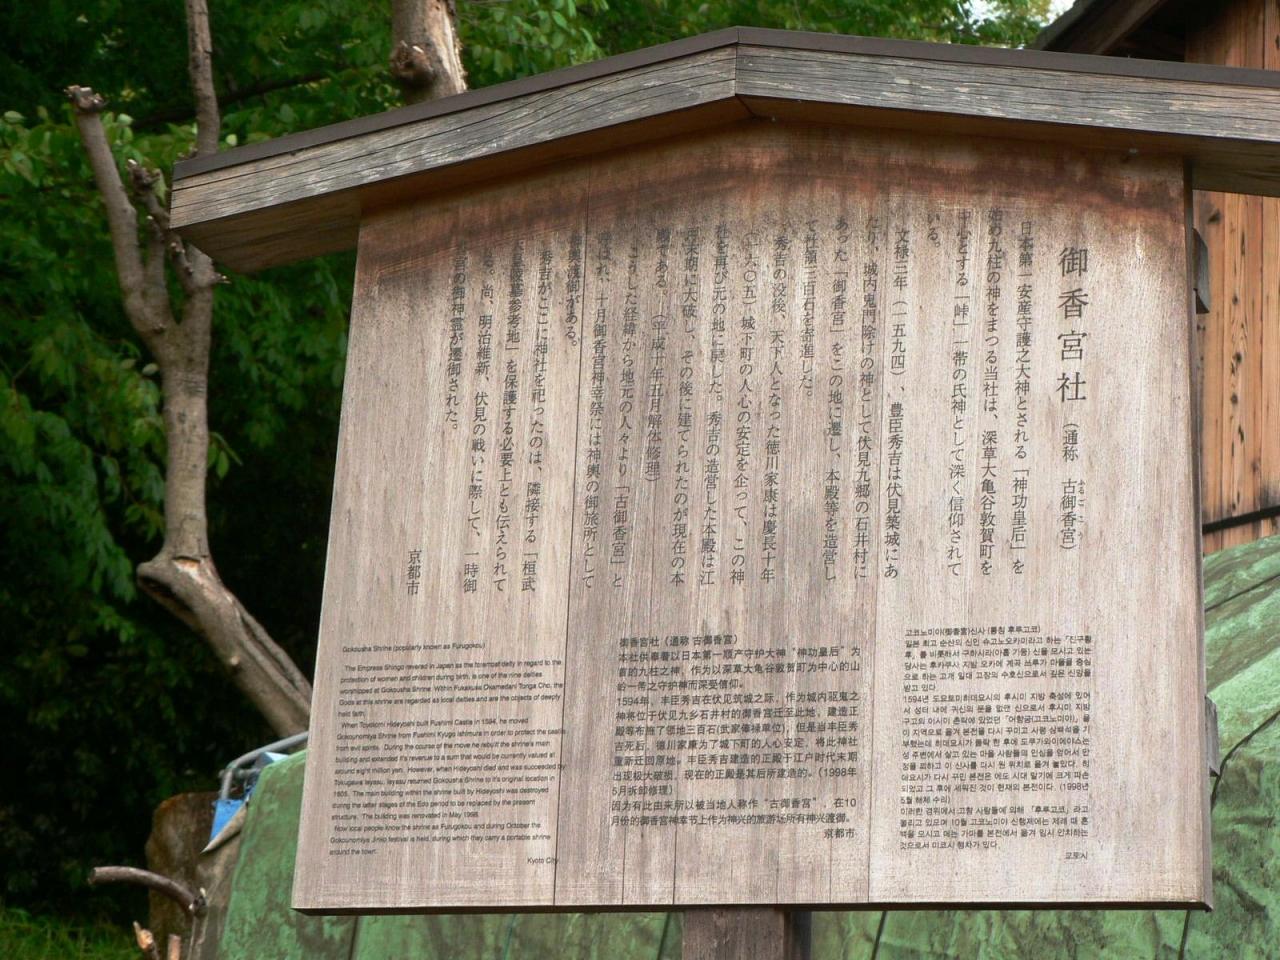 御香宮社（通称 古御香宮）
日本第一安産守護之大神とされる「神功皇后」を
始め九柱の神をまつる当社は、深草大亀谷敦賀町を
中心とする「峠」一帯の氏神として深く信仰されて
いる。
文禄三年（一五九四）、豊臣秀吉は伏見築城にあ
たり、城内鬼門除けの神として伏見九郷の石井村に
あった「御香宮」をこの地に遷し、本殿等を造営し
て社領三百石を寄進した。
秀吉の没後、天下人となった徳川家康は慶長十年
（一六〇五）、城下町の人心の安定を企って、この神
社を再び元の地に戻した。秀吉の造営した本殿は江
戸末期に大破し、その後に建てられたのが現在の本
殿である。（平成十年五月解体修理）
こうした経緯から地元の人々より「古御香宮」と
呼ばれ、十月御香宮神幸祭には神輿の御旅所として
渡御がある。
秀吉がここに神社を祀ったのは、隣接する「桓武
天皇陵墓参考地」を保護する必要上とも伝えられて
いる。尚、明治維新、伏見の戦いに際して、一時御
香宮の御神霊が遷御された。
京都市
Gokousha Shrine (popularly known as Furugokou)
The Empress Shingo revered in Japan as the foremost deity in regard to the
protection of women and children during birth, is one of the nine deities
worshipped at Gokousha Shrine. Within Fukakusa Okamedani Tonga Cho, the
Gods at this shrine are regarded as local deities and are the objects of deeply
held faith.
When Toyotomi Hideyoshi built Fushimi Castle in 1594, he moved
Gokounomiya Shrine from Fushimi Kyugo Ishimura in order to protect the castle
from evil spirits. During the course of the move he rebuilt the shrine's main
building and extended it's revenue to a sum that would be currently valued at
around eight million yen. However, when Hideyoshi died and was succeeded by
Tokugawa Ieyasu, Ieyasu returned Gokousha Shrine to it's original location in
1605. The main building within the shrine built by Hideyoshi was destroyed
during the latter stages of the Edo period to be replaced by the present
structure. The building was renovated in May 1998.
Now local people know the shrine as Furugokou and during October the
Gokounomiya Jinko festival is held, during which they carry a portable shrine
around the town.
Kyoto City
御香宫社（通称 古御香宫）
本社供奉着以日本第一顺产守护大神“神功皇后”为
首的九柱之神，作为以深草大龟谷敦贺町为中心的山
的一带之守护神而深受信仰。
1594年，丰臣秀吉在伏见筑城之际，作为城内驱鬼之
神将位于伏见九乡石井村的御香宫迁至此地，建造正
殿等布施了领地三百石(武家俸禄单位)，但是当丰臣秀
吉死后，德川家康为了城下町的人心安定，将此神社
重新迁回原地。丰臣秀吉建造的正殿于江户时代末期
出现极大破损，现在的正殿是其后所建造的。（1998年
5月拆卸修理）
因为有此由来所以被当地人称作“古御香宫”，在10
月份的御香宫神幸节上作为神兴的旅游场所有神兴渡御。
京都市
고코노미야(御香宮)신사 (통칭 후루고코)
일본 최고 순산의 신인 슈고노오카미라고 하는 「진구황
후」를 비롯해서 구하시라(아홉 기둥) 신을 모시고 있는
당사는 후카쿠사 지방 오카에 계곡 쓰루가 마을을 중심
으로 하는 고개 일대 고장의 수호신으로서 깊은 신앙을
받고 있다.
1594년 도요토미히데요시의 후시미 지방 축성에 있어
서 성터 내에 귀신의 문을 없앤 신으로서 후시미 지방
구고의 이시이 촌락에 있었던 「어향궁(고코노미야)」을
이 지역으로 옮겨 본전을 다시 꾸미고 사령 삼백석을 기
부했는데 히데요시가 몰락 한 후에 도쿠가와이에야스는
성 주변에서 살고 있는 마을 사람들의 민심을 얻어서 안
정을 꾀하고 이 신사를 다시 원 위치로 옮겨 놓았다. 히
데요시가 다시 꾸민 본전은 에도 시대 말기에 크게 파손
되었고 그 후에 세워진 것이 현재의 본전이다. (1998년
5월 해체 수리)
이러한 경위에서 고향 사람들에 의해 「후루고코」라고
불리고 있으며 10월 고코노미야 신행제에는 제례 때 혼
백을 모시고 메는 가마를 본전에서 옮겨 임시 안치하는
것으로서 미코시 행차가 있다.
교토시